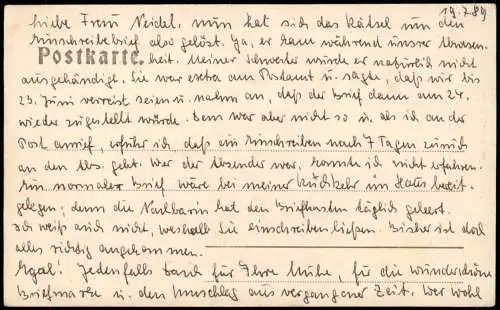 19.7.89
Liebe Frau Neidel, nun hat sich das Rätsel um den
Einschreibebrief also gelöst. Ja, er kam während unsrer Abwesen-
Postkarte. heit. Meiner Schwester wurde er natürlich nicht
ausgehändigt. Sie war extra am Postamt u. sagte, daß wir bis
23. Juni verreist seien u. nahm an, daß der Brief dann am 24.
wieder zugestellt würde. Dem war aber nicht so u. als ich an der
Post anrief, erfuhr ich, daß ein Einschreiben nach 7 Tagen zurück
an den Abs. geht. Wer der Absender war, konnte ich nicht erfahren.
Ein normaler Brief wäre bei meiner Rückkehr im Haus bereit-
gelegen; denn die Nachbarin hat den Briefkasten täglich geleert.
Ich weiß auch nicht, weshalb Sie einschreiben ließen. Bisher ist doch
alles richtig angekommen.
Egal! Jedenfalls Dank für Ihre Mühe, für die wunderschöne
Briefmarke u. den Umschlag aus vergangener Zeit. Wer wohl